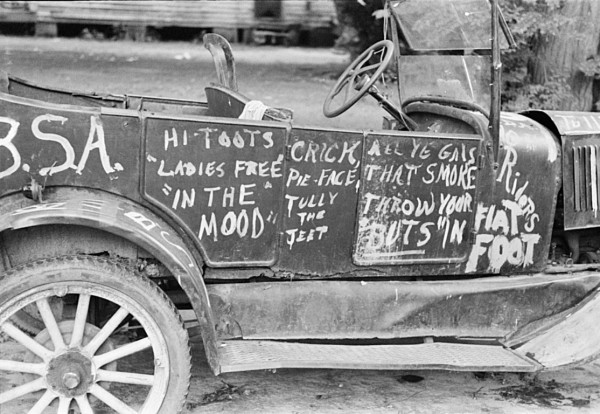 B.S.A.
HI-TOOTS
"LADIES FREE"
"IN THE"
MOOD"
CRICK
PIE-FACE
TULLY
THE
JEET
ALL YE GALS
THAT SMOKE
THROW YOUR
"BUTS" IN
Riders
FLAT
FOOT